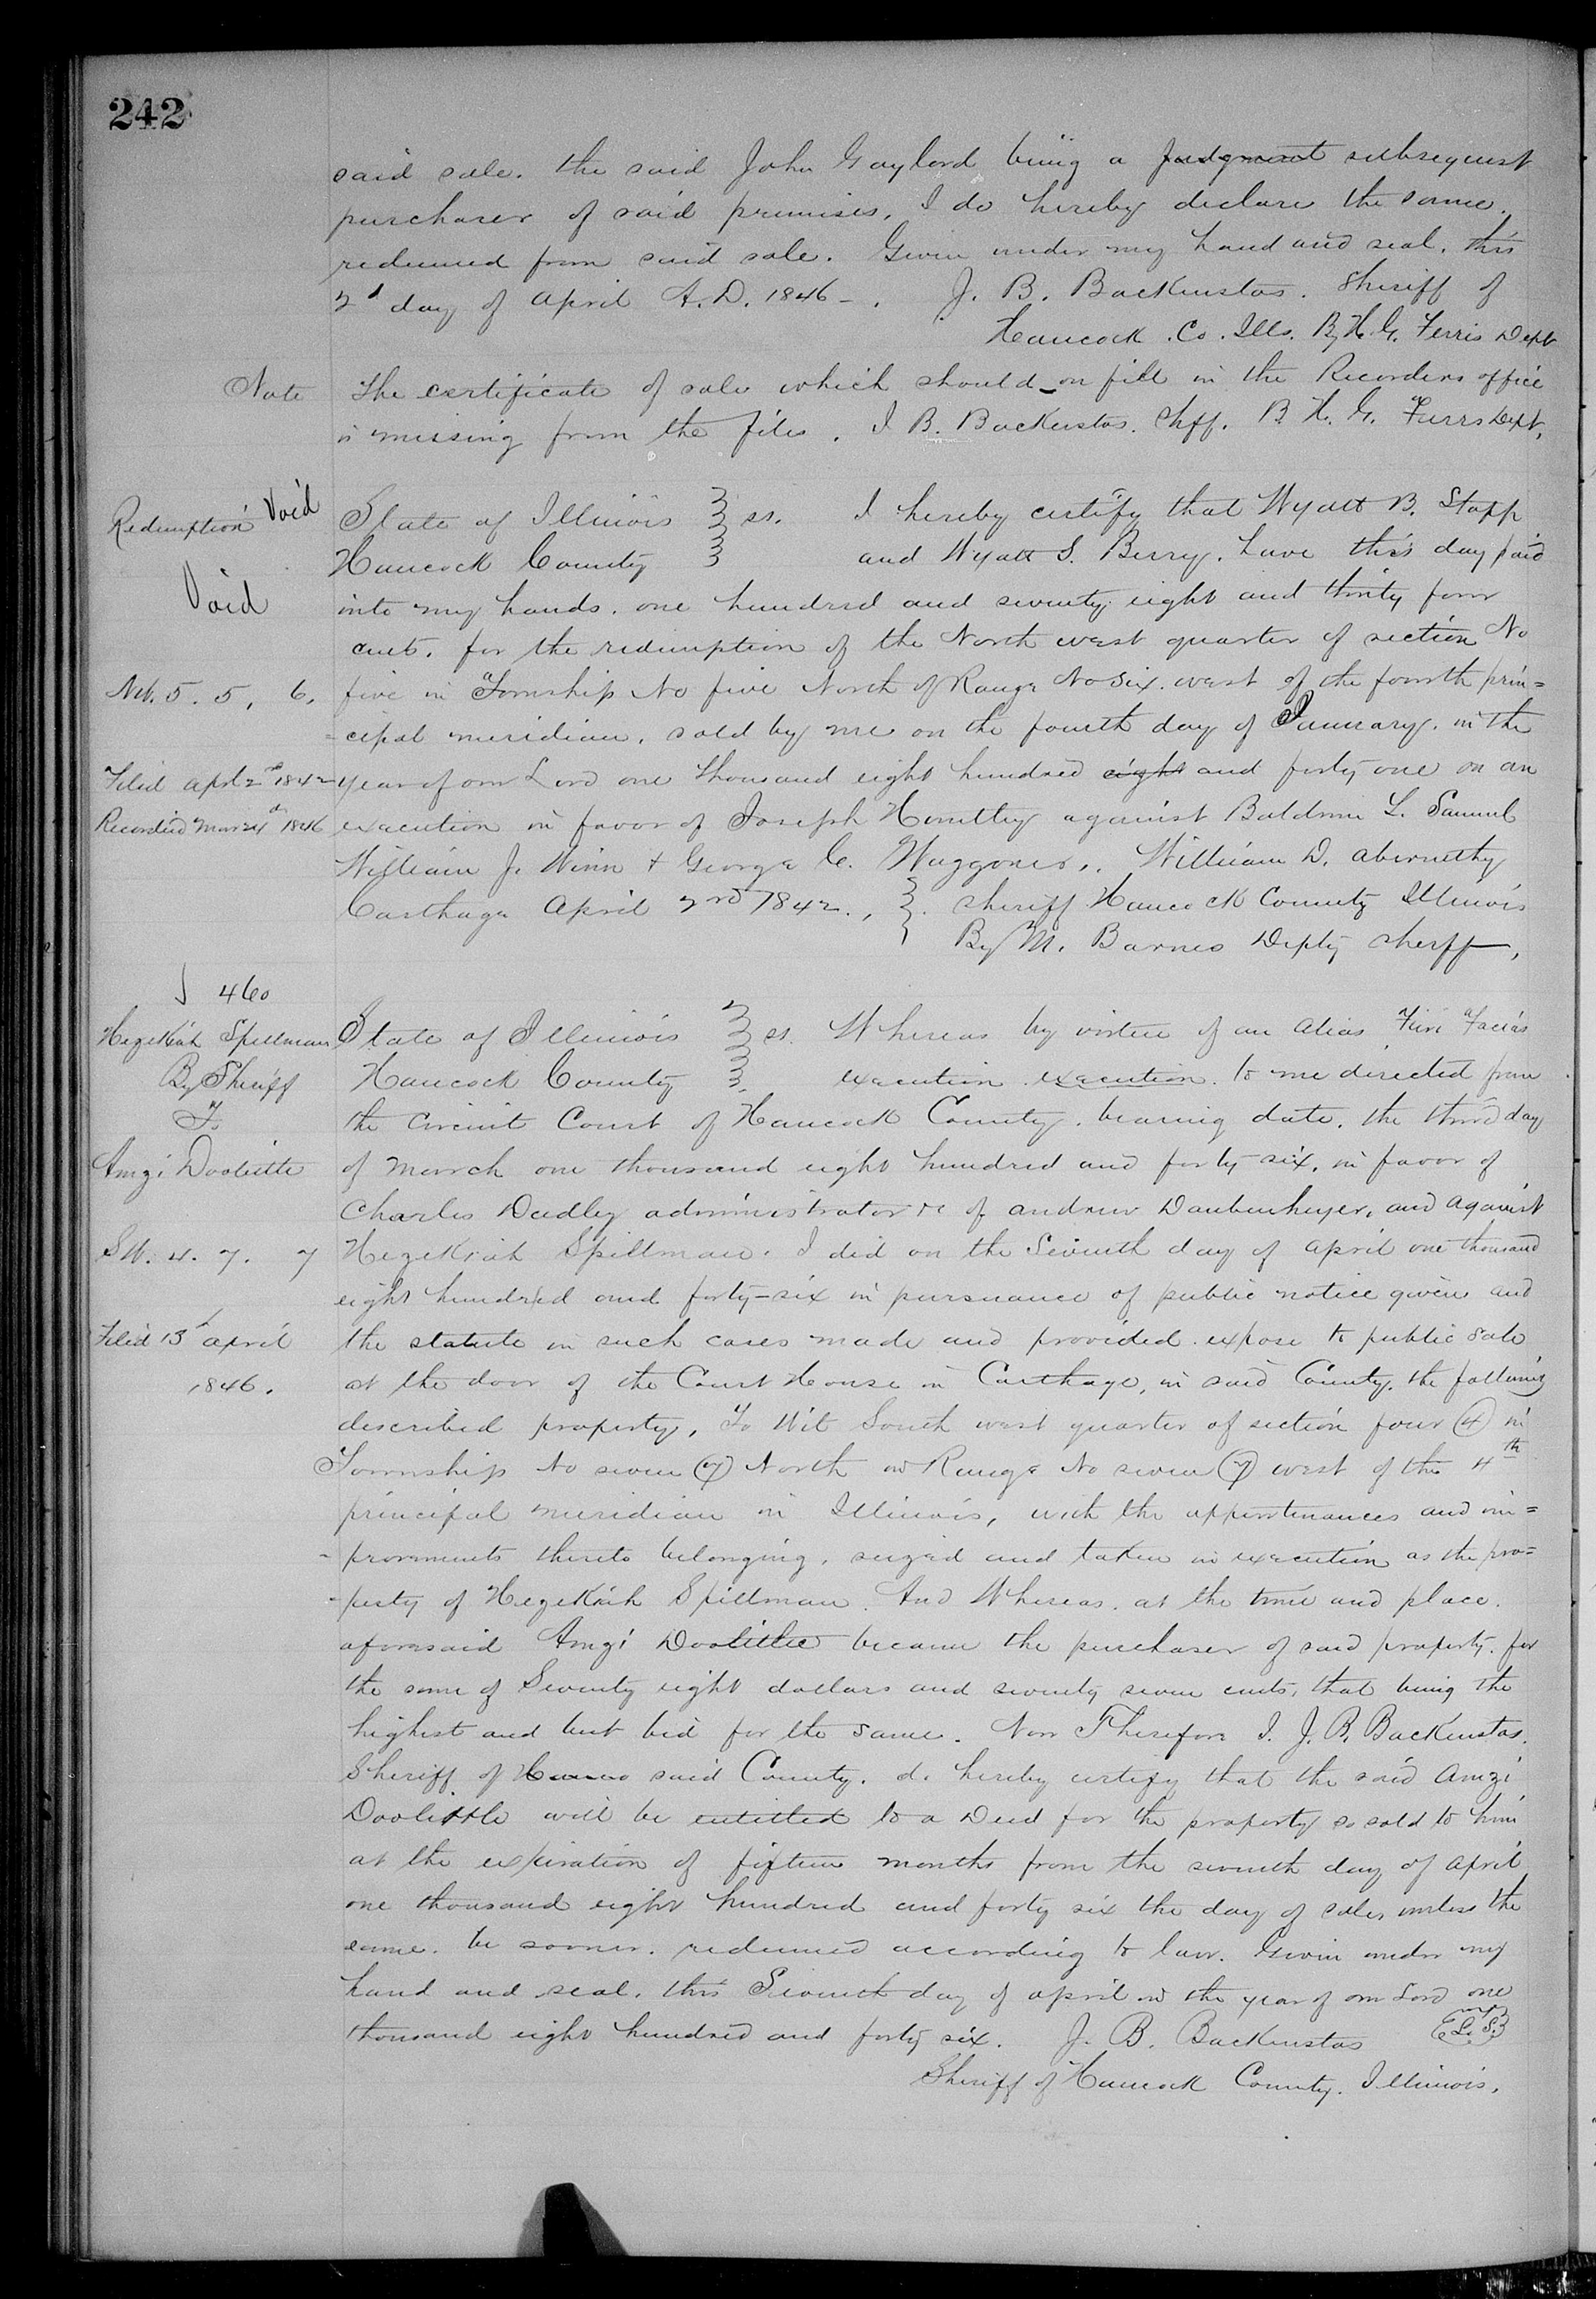 242
said sale. the said John Gaylord being a judgment subsequent
purchaser of said premises, I do hereby declare the same.
redeemed from said sale. Given under my hand and seal. this
2d day of April A.D. 1846 - . J. B. Backenstos. Sheriff of
Hancock . Co . Ills. By H. G. Ferris Dept
Note The certificate of sale which should on file in the Recorders office
is missing from the files . J B. Backenstos. Shff. B H. G. Ferrs Dept,
Redemption Void State of Illinois } ss. I hereby certify that Wyatt B. Stapp
Hancock County } and Wyatt S. Berry. have this day paid
Void into my hands. one hundred and seventy eight and thirty four
cents. for the redemption of the North west quarter of section No
NW. 5. 5, 6, five in Township No five North of Range No Six. west of the fourth prin=
-cipal meridian. sold by me on the fourth day of January. in the
Filed Apl 2nd 1842 year of our Lord one thousand eight hundred eight and forty one on an
Recorded Mar 24th 1846 execution in favor of Joseph against Baldwin L. Samuel
William J. Winn & George C. Waggoner,. William D. Abernethy
Carthage April 2nd 1842., } Sheriff Hancock County Illinois
By M. Barnes Depty Sherff,
J 460
Hezekiah Spillman State of Illinois } ss. Whereas by virtue of an alias Fieri Facias
By Sheriff Hancock County } execution execution. to me directed from
To the Circuit Court of Hancock County. bearing date. the third day
Amzi Doolittle of March one thousand eight hundred and forty six. in favor of
Charles Dudley administrator &c of Andrew Daubenheyer, and against
SW. 4. 7. 7 Hezekiah Spillman. I did on the Seventh day of April one thousand
eight hundred and forty-six in pursuance of public notice given and
Filed 13th April the statute in such cases made and provided. expose to public sale
1846. at the door of the Court House in Carthage, in said County. the following
described property, To Wit South west quarter of section four (4) in
Township No seven (7) North on Range No seven (7) west of the 4th
principal meridian in Illinois, with the appurtenances and im=
-provements thereto belonging. seized and taken in execution as the pro=
-perty of Hezekiah Spillman. And Whereas. at the time and place.
aforesaid Amzi Doolittle became the purchaser of said property. for
the some of Seventy eight dollars and seventy seven cents, that being the
highest and best bid for the same. Now Therefore I. J. B. Backenstos.
Sheriff of Hanco said County. do hereby certify that the said Amzi
Doolittle will be entitled to a Deed for the property so sold to him
at the expiration of fifteen months from the seventh day of April
one thousand eight hundred and forty six the day of sale, unless the
same. be sooner. redeemed according to law. Given under my
hand and seal. this Seventh day of April in the year of our Lord one
thousand eight hundred and forty six. J. B. Backenstos L. S.
Sheriff of Hancock County. Illinois,